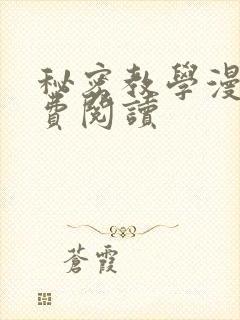 秘密教學漫
費閱讀
蒼霞